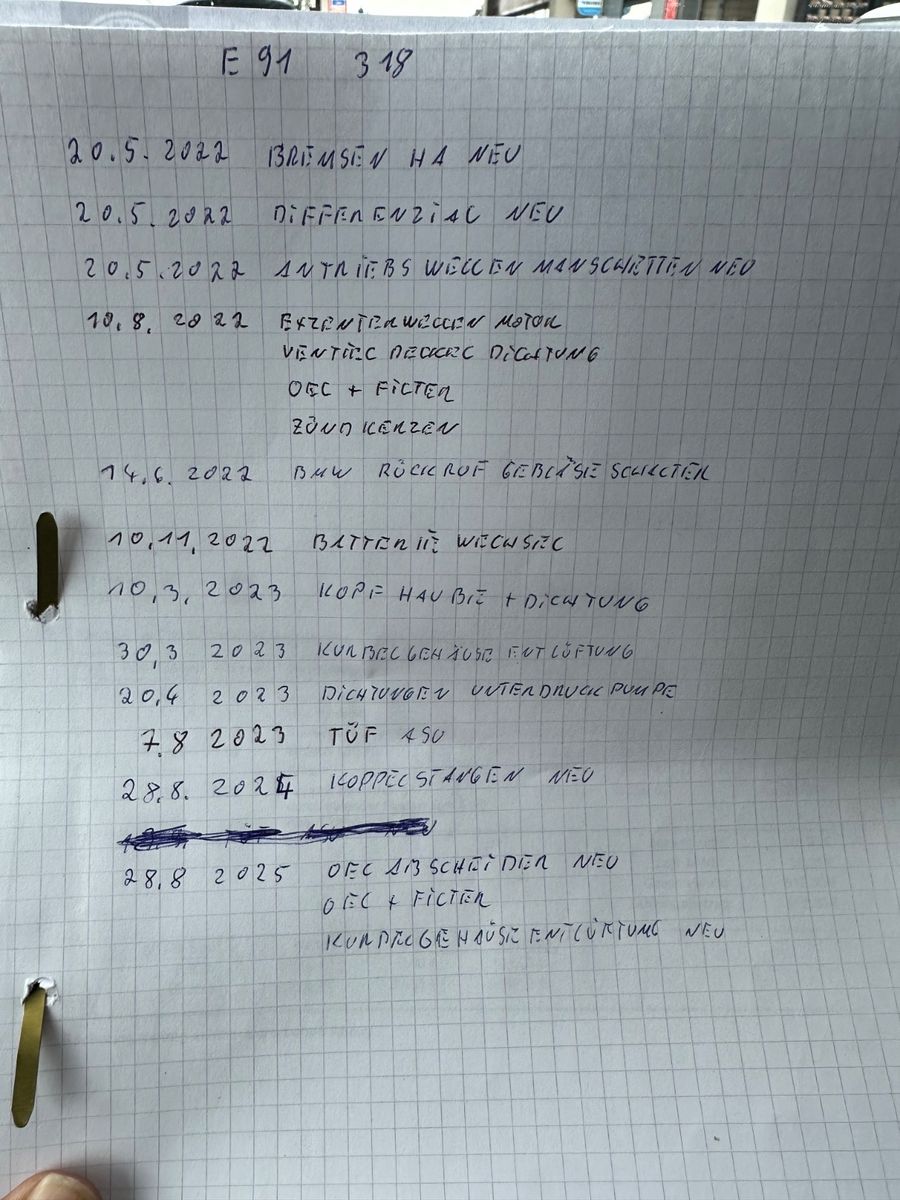 E 91 318
20.5.2022 BREMSEN HA NEU
20.5.2022 DIFFERENZIAL NEU
20.5.2022 ANTRIEBS WELLEN MANSCHETTEN NEU
10.8.2022 EXZENTERWELLEN MOTOR
VENTIEL DECKEL DICHTUNG
OEL + FILTER
ZÜND KERZEN
14.6.2022 BMW RÜCKRUF GEBLÄSE SCHALTER
10.11.2022 BATTERIE WECHSEL
10.3.2023 KOPF HAUBE + DICHTUNG
30.3 2023 KURBELGEHÄUSE ENTLÜFTUNG
20.4 2023 DICHTUNGEN UNTERDRUCK PUMPE
7.8 2023 TÜF ASU
28.8. 2024 KOPPELSTANGEN NEU
28.8 2025 OEL ABSCHEIDER NEU
OEL + FILTER
KURBELGEHÄUSE ENTLÜFTUNG NEU